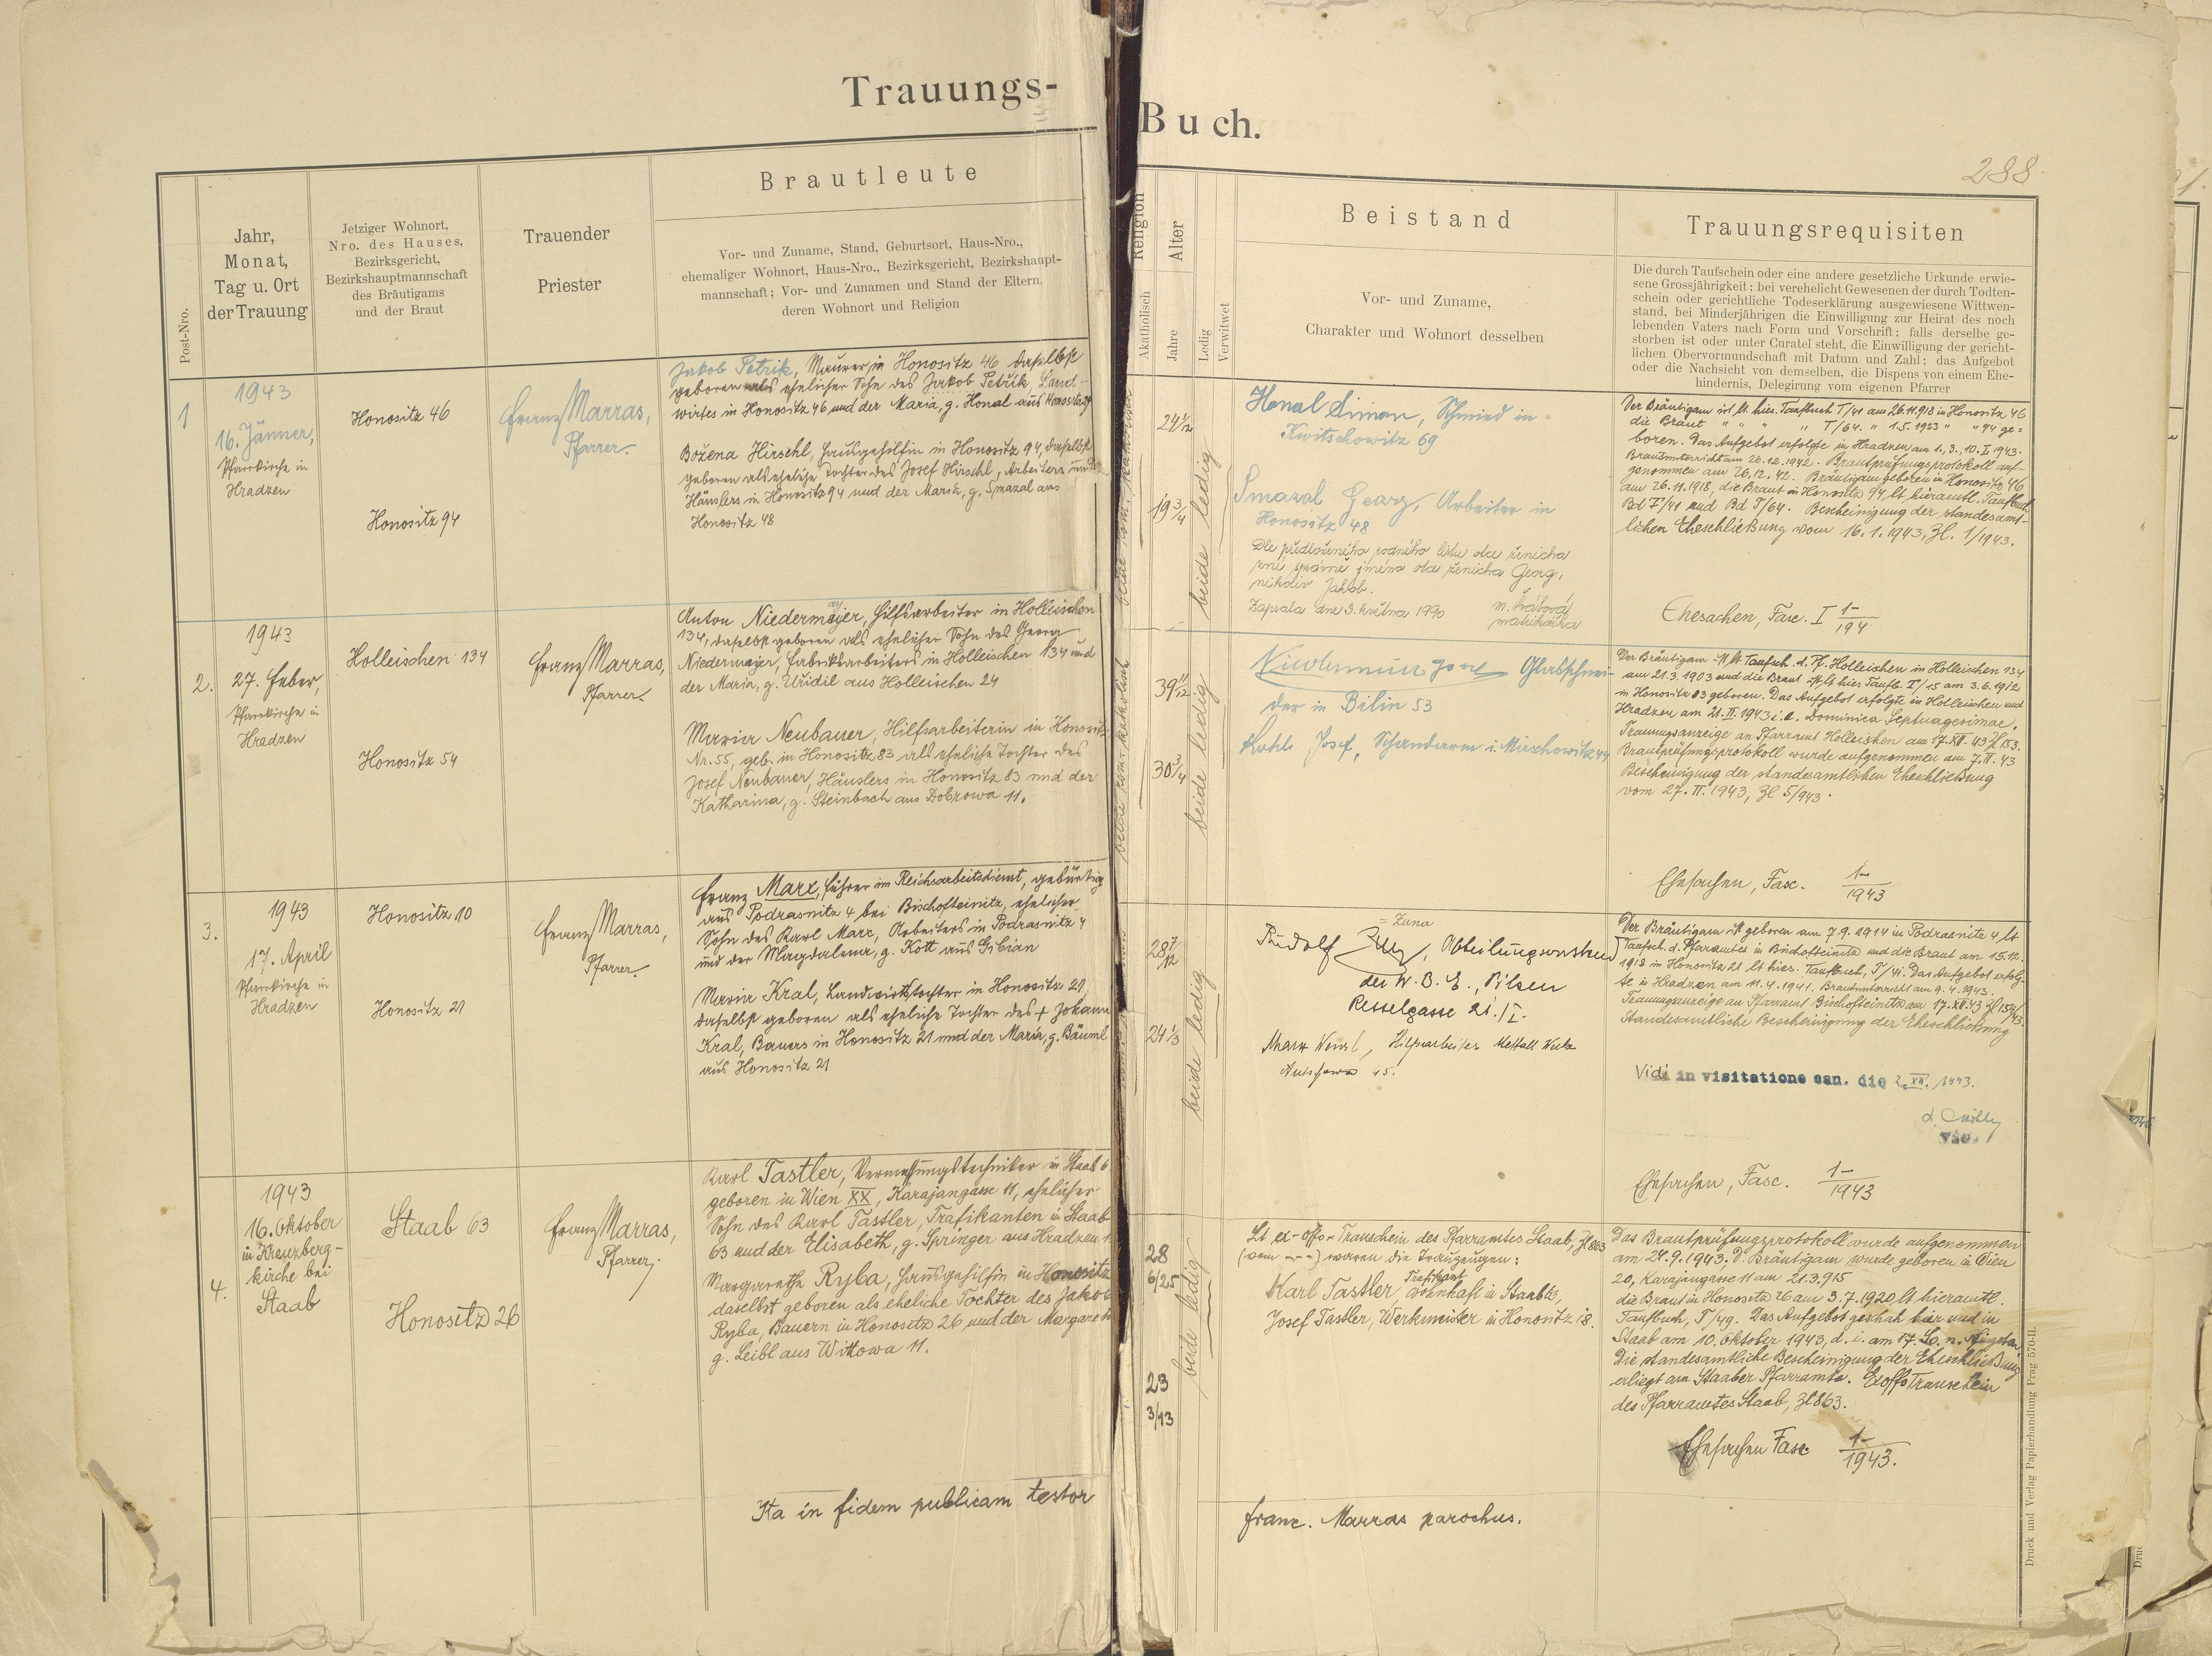 Trauungs-
Buch.
288.
Post-Nro.
Jahr,
Monat,
Tag u. Ort
der Trauung
Jetziger Wohnort,
Nro. des Hauses,
Bezirksgericht,
Bezirkshauptmannschaft
des Bräutigams
und der Braut
Trauender
Priester
Brautleute
Vor- und Zuname, Stand, Geburtsort, Haus-Nro.,
ehemaliger Wohnort, Haus-Nro., Bezirksgericht, Bezirkshaupt-
mannschaft; Vor- und Zunamen und Stand der Eltern,
deren Wohnort und Religion
Religion
Akatholisch
Alter
Jahre
Ledig
Verwitwet
Beistand
Vor- und Zuname,
Charakter und Wohnort desselben
Trauungsrequisiten
Die durch Taufschein oder eine andere gesetzliche Urkunde erwie-
sene Grossjährigkeit; bei verehelicht Gewesenen der durch Todten-
schein oder gerichtliche Todeserklärung ausgewiesene Wittwen-
stand, bei Minderjährigen die Einwilligung zur Heirat des noch
lebenden Vaters nach Form und Vorschrift; falls derselbe ge-
storben ist oder unter Curatel steht, die Einwilligung der gericht-
lichen Obervormundschaft mit Datum und Zahl; das Aufgebot
oder die Nachsicht von demselben, die Dispens von einem Ehe-
hindernis, Delegirung vom eigenen Pfarrer
1
1943
16. Jänner,
Pfarrkirche in
Hradzen
Honositz 46
Honositz 94
Franz Marras,
Pfarrer.
Jakob Petrik, Maurer in Honositz 46 daselbst
geboren als ehelicher Sohn des Jakob Petřik, Land-
wirtes in Honositz 46 und der Maria, g. Honal aus Honositz
Božena Hirschl, Hausgehilfin in Honositz 94, daselbst
geboren als eheliche Tochter des Josef Hirschl, Arbeiters und
Häuslers in Honositz 94 und der Maria, g. Smazal aus
Honositz 48
24 1/12
19 3/4
beide ledig
Honal Simon, Schmied in
Kwitschowitz 69
Smazal Georg, Arbeiter in
Honositz 48
Dle předloženého rodného listu otce ženicha
zní správně jméno otce ženicha Georg,
nikoliv Jakob.
Zapsala dne 3. května 1990
matrikářka
Der Bräutigam ist lt hies. Taufbuch T/41 am 26.11.918 in Honositz 46
die Braut " " " " T/64. " 1.5.1923 " " 94 ge=
boren. Das Aufgebot erfolgte in Hradzen am 1., 3., 10. I. 1943.
Brautunterricht am 26.12.1942. Brautprüfungsprotokoll auf-
genommen am 26.12.42. Bräutigam geboren in Honositz 46
am 26.11.1918, die Braut in Honositz 94 lt hieramtl. Taufbuch
Bd T/41 und Bd T/64. Bescheinigung der standesamt-
lichen Eheschließung vom 16.1.1943, Zl. 1/1943.
Ehesachen, Fasc. I 1-/194
2.
1943
27. Feber,
Pfarrkirche in
Hradzen
Holleischen 134
Honositz 54
Franz Marras,
Pfarrer
Anton Niedermajer, Hilfsarbeiter in Holleischen
134, daselbst geboren als ehelicher Sohn des Georg
Niedermajer, Fabriksarbeiters in Holleischen 134 und
der Maria, g. Uřidil aus Holleischen 24
Maria Neubauer, Hilfsarbeiterin in Honositz
Nr. 55, geb. in Honositz 83 als eheliche Tochter des
Josef Neubauer, Häuslers in Honositz 83 und der
Katharina, g. Steinbach aus Dobrowa 11.
beide röm. katholisch
39 11/12
30 3/4
beide ledig
Glasschnei-
der in Bilin 53
Josef, Schandarm i. Mirschowitz 44
Der Bräutigam ist lt Taufsch. d. Pf. Holleischen in Holleischen 134
am 21.3.1903 und die Braut ist lt hies Taufb. T/15 am 3.6.1912
in Honositz 83 geboren. Das Aufgebot erfolgte in Holleischen und
Hradzen am 21. II. 1943 i.e. Dominica Septuagesimae.
Trauungsanzeige an Pfarramt Holleischen am 17. XII. 43 Zl 153.
Brautprüfungsprotokoll wurde aufgenommen am 7. II. 43
Bescheinigung der standesamtlichen Eheschließung
vom 27. II. 1943, Zl 5/943.
Ehesachen, Fasc. 1-/1943
3.
1943
17. April
Pfarrkirche in
Hradzen
Honositz 10
Honositz 21
Franz Marras,
Pfarrer
Franz Marx, Führer im Reichsarbeitsdienst, gebürtig
aus Podrasnitz 4 bei Bischofteinitz, ehelicher
Sohn des Karl Marx, Arbeiters in Podrasnitz 4
und der Magdalena, g. Kott aus Gibian
Maria Kral, Landwirtstochter in Honositz 21,
daselbst geboren als eheliche Tochter des + Johann
Kral, Bauers in Honositz 21 und der Maria, g. Bäuml
aus Honositz 21
28 7/12
24 1/3
beide ledig
= Zuna
Rudolf Zuna, Abteilungsvorstand
der W. B. E., Pilsen
Resselgasse 21./I.
Marx Wenzl, Hilfsarbeiter Metall Werke
45.
Der Bräutigam ist geboren am 7.9.1914 in Podrasnitz 4 lt
Taufsch. d. Pfarramtes in Bischofteinitz und die Braut am 15.12.
1918 in Honositz 21 lt hies. Taufbuch, T/41. Das Aufgebot erfolg-
te in Hradzen am 11.4.1941. Brautunterricht am 9.4.1943.
Trauungsanzeige an Pfarramt Bischofteinitz am 17. XII. 43 Zl 154/43.
Standesamtliche Bescheinigung der Eheschließung
Vidi in visitatione can. die 2. XII. 1943.
vic.
Ehesachen, Fasc. 1-/1943
4.
1943
16. Oktober
in Kreuzberg-
kirche bei
Staab
Staab 63
Honositz 26
Franz Marras,
Pfarrer
Karl Tastler, Vermessungstechniker in Staab 6
geboren in Wien XX, Karajangasse 11, ehelicher
Sohn des Karl Tastler, Trafikanten in Staab
63 und der Elisabeth, g. Springer aus Hradzen 1
Margaretha Ryba, Hausgehilfin in Honositz
daselbst geboren als eheliche Tochter des Jakob
Ryba, Bauern in Honositz 26 und der Margareth
g. Leibl aus Wittowa 11.
28
6/25
23
3/13
beide ledig
Lt ex-offo-Trauschein des Pfarramtes Staab, Zl 863
(vom ---) waren die Trauzeugen:
Karl Tastler, Trafikant wohnhaft in Staab 63,
Josef Tastler, Werkmeister in Honositz 18.
Das Brautprüfungsprotokoll wurde aufgenommen
am 24.9.1943. D. Bräutigam wurde geboren in Wien
20, Karajangasse 11 am 21.3.915
die Braut in Honositz 26 am 3.7.1920 lt hieramtl.
Taufbuch, T/49. Das Aufgebot geschah hier und in
Staab am 10. Oktober 1943, d. i. am 17. So. n. Pfingsten.
Die standesamtliche Bescheinigung der Eheschließung
erliegt am Staaber Pfarramte. Exoffo Trauschein
des Pfarramtes Staab, Zl 863.
Ehesachen Fasc 1-/1943.
Ita in fidem publicam testor
Franc. Marras parochus.
Druck und Verlag Papierhandlung Prag 570-II.